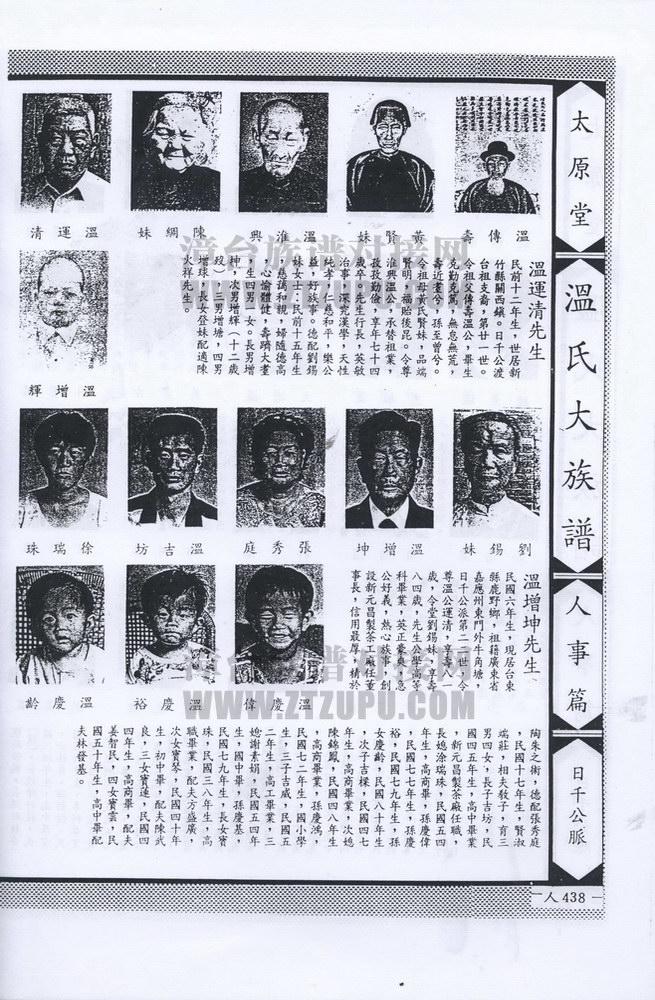 太原堂
溫氏大族譜
人事篇
日千公脈
人438
溫傳壽
黃賢妹
溫淮興
陳綢妹
溫運清
溫運清先生
民前十二年生，世居新
竹縣關西鎮。日千公渡
台祖支裔，第廿一世。
令祖父傳壽溫公，畢生
克勤克篤，無怠無荒，
壽近耄兮，孫至曾兮。
令祖母黃氏賢妹，品端
賢明，福貽後昆。令尊
淮興溫公，承替祖業，
孜孜勤儉，享年七十四
歲卒。先生行長，英敏
治事，深究漢學，天性
純孝，仁慈和平，樂公
益，好族事。德配劉錫
妹女士：民前十五年生
，慈藹和親，婦隨德高
，心愉體健，壽躋大耋
，生四男一女。長男增
坤，次男增輝（十二歲
歿）三男增塘，四男
增球，長女登妹配適陳
火祥先生。
溫增輝
劉錫妹
溫增坤
張秀庭
溫吉坊
徐瑞珠
溫增坤先生
民國六年生，現居台東
縣鹿野鄉，祖籍廣東省
嘉應州東門外牛角塘，
日千公派第二二世。令
尊溫公運清，享壽一
歲，令堂劉錫妹，享壽
八四歲，先生公學高等
科畢業，英正豪爽，急
公好義，熱心族事，創
設新元昌製茶工廠任董
事長，信用最厚，精於
溫慶偉
溫慶裕
溫慶齡
陶朱之術，德配張秀庭
，民國十七年生，賢淑
端莊，相夫教子，育三
男四女，長子吉坊，民
國四五年生，高中畢業
，新元昌製茶廠任職，
長媳涂瑞珠，民國五四
年生，高商畢，孫慶偉
，民國七七年生，孫慶
裕，民國七九年生，孫
女慶齡，民國八十年生
，次子吉樑，民國四七
年生，高商畢業，次媳
陳錦鳳，民國四八年生
，高商畢業，孫慶鴻，
民國七二年生，國小學
生，三子吉威，民國五
二年生，高工畢業，三
媳謝素娟，民國五四年
生，國中畢，孫慶基，
民國七九年生，長女寶
珠，民國三八年生，高
職畢業，配夫方盛廣，
次女寶琴，民國四十年
生，初中畢，配夫陳武
良，三女寶蓮，民國四
四年生，高商畢，配夫
姜智民，四女寶雲，民
國五十年生，高中畢配
夫林發基。
漳台族譜对接网
漳台族譜对接网
WWW.ZTZUPU.COM